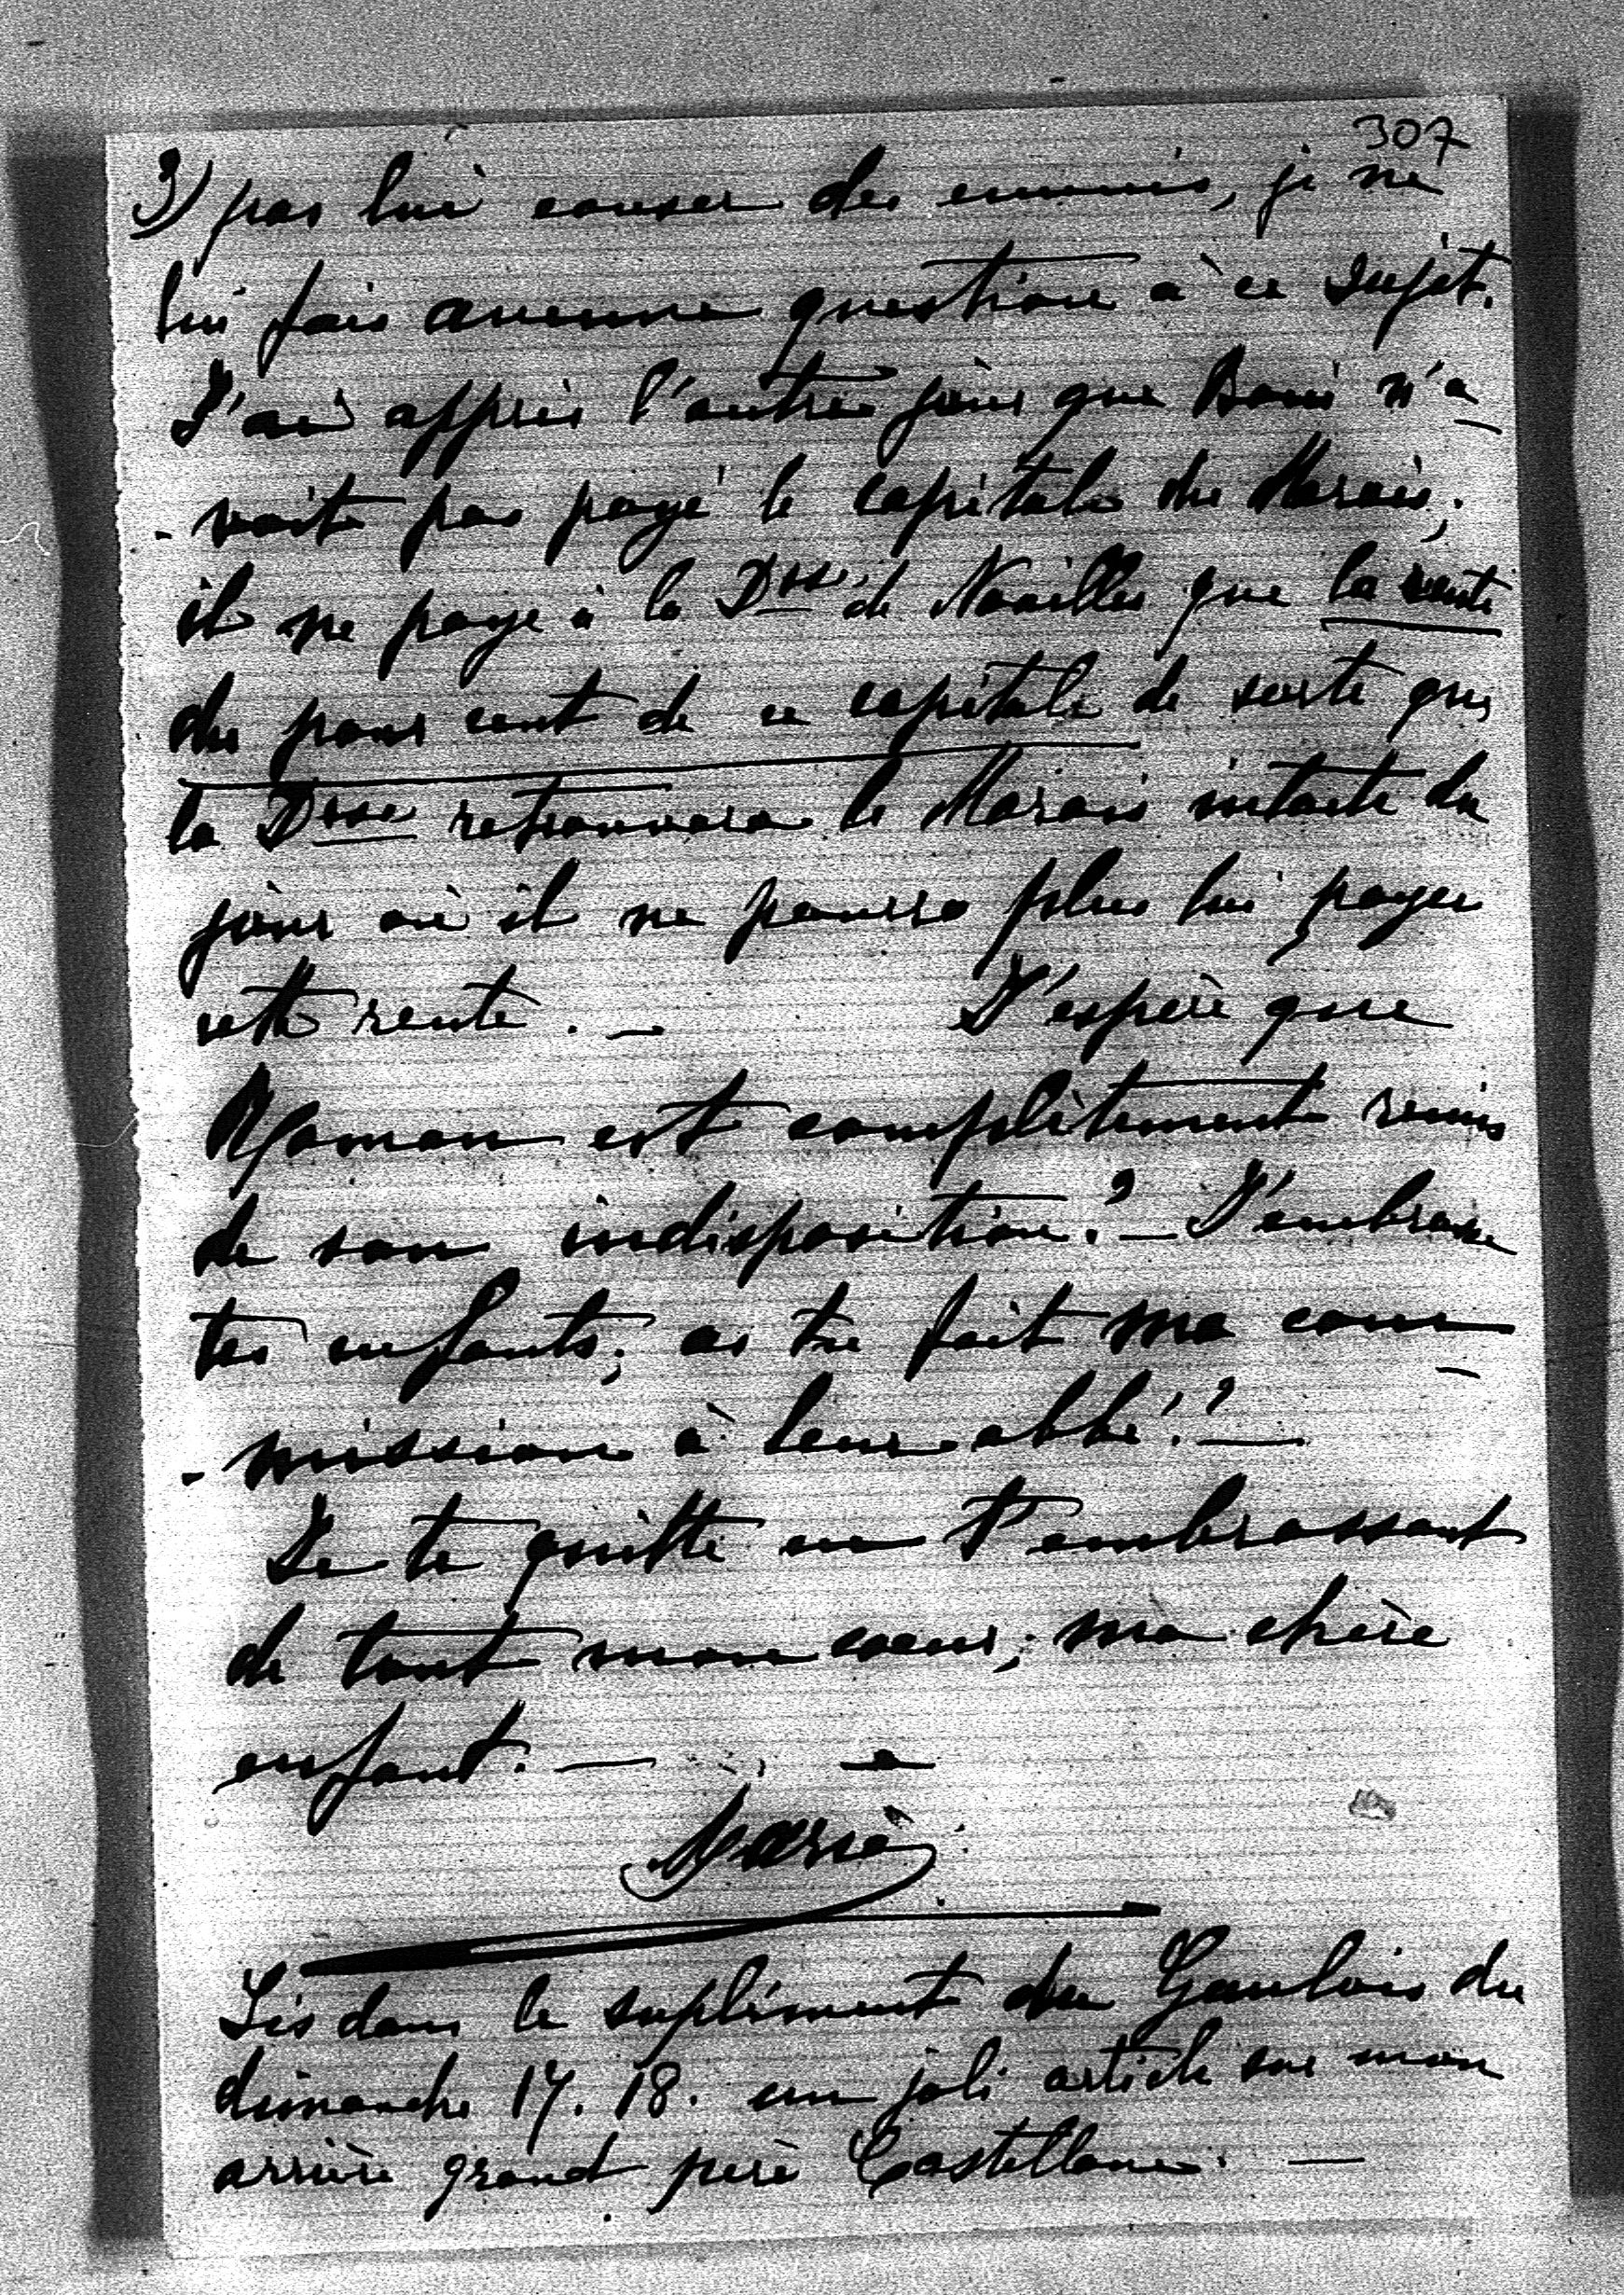 307
3) pas lui causer des ennuis, je ne
lui fais aucune question à ce sujet.
J'ai appris l'autre jour que Boni n'a
- vait pas payé le capitale du Marais;
il ne paye à la Dsse de Noailles que la rente
du pour cent de ce capitale de sorte que
la Dsse retrouvera le Marais intacte du
jour où il ne pourra plus lui payer
cette rente. — J'espère que
Maman est complètement remis
de son indisposition? — J'embrasse
tes enfants; as tu fait ma com
- mission à leur abbé? —
Je te quitte en t'embrassant
de tout mon coeur, ma chère
enfant. — —
Marie
Lis dans le suplément du Gaulois du
dimanche 17. 18. un joli article sur mon
arrière grand père Castellane. —